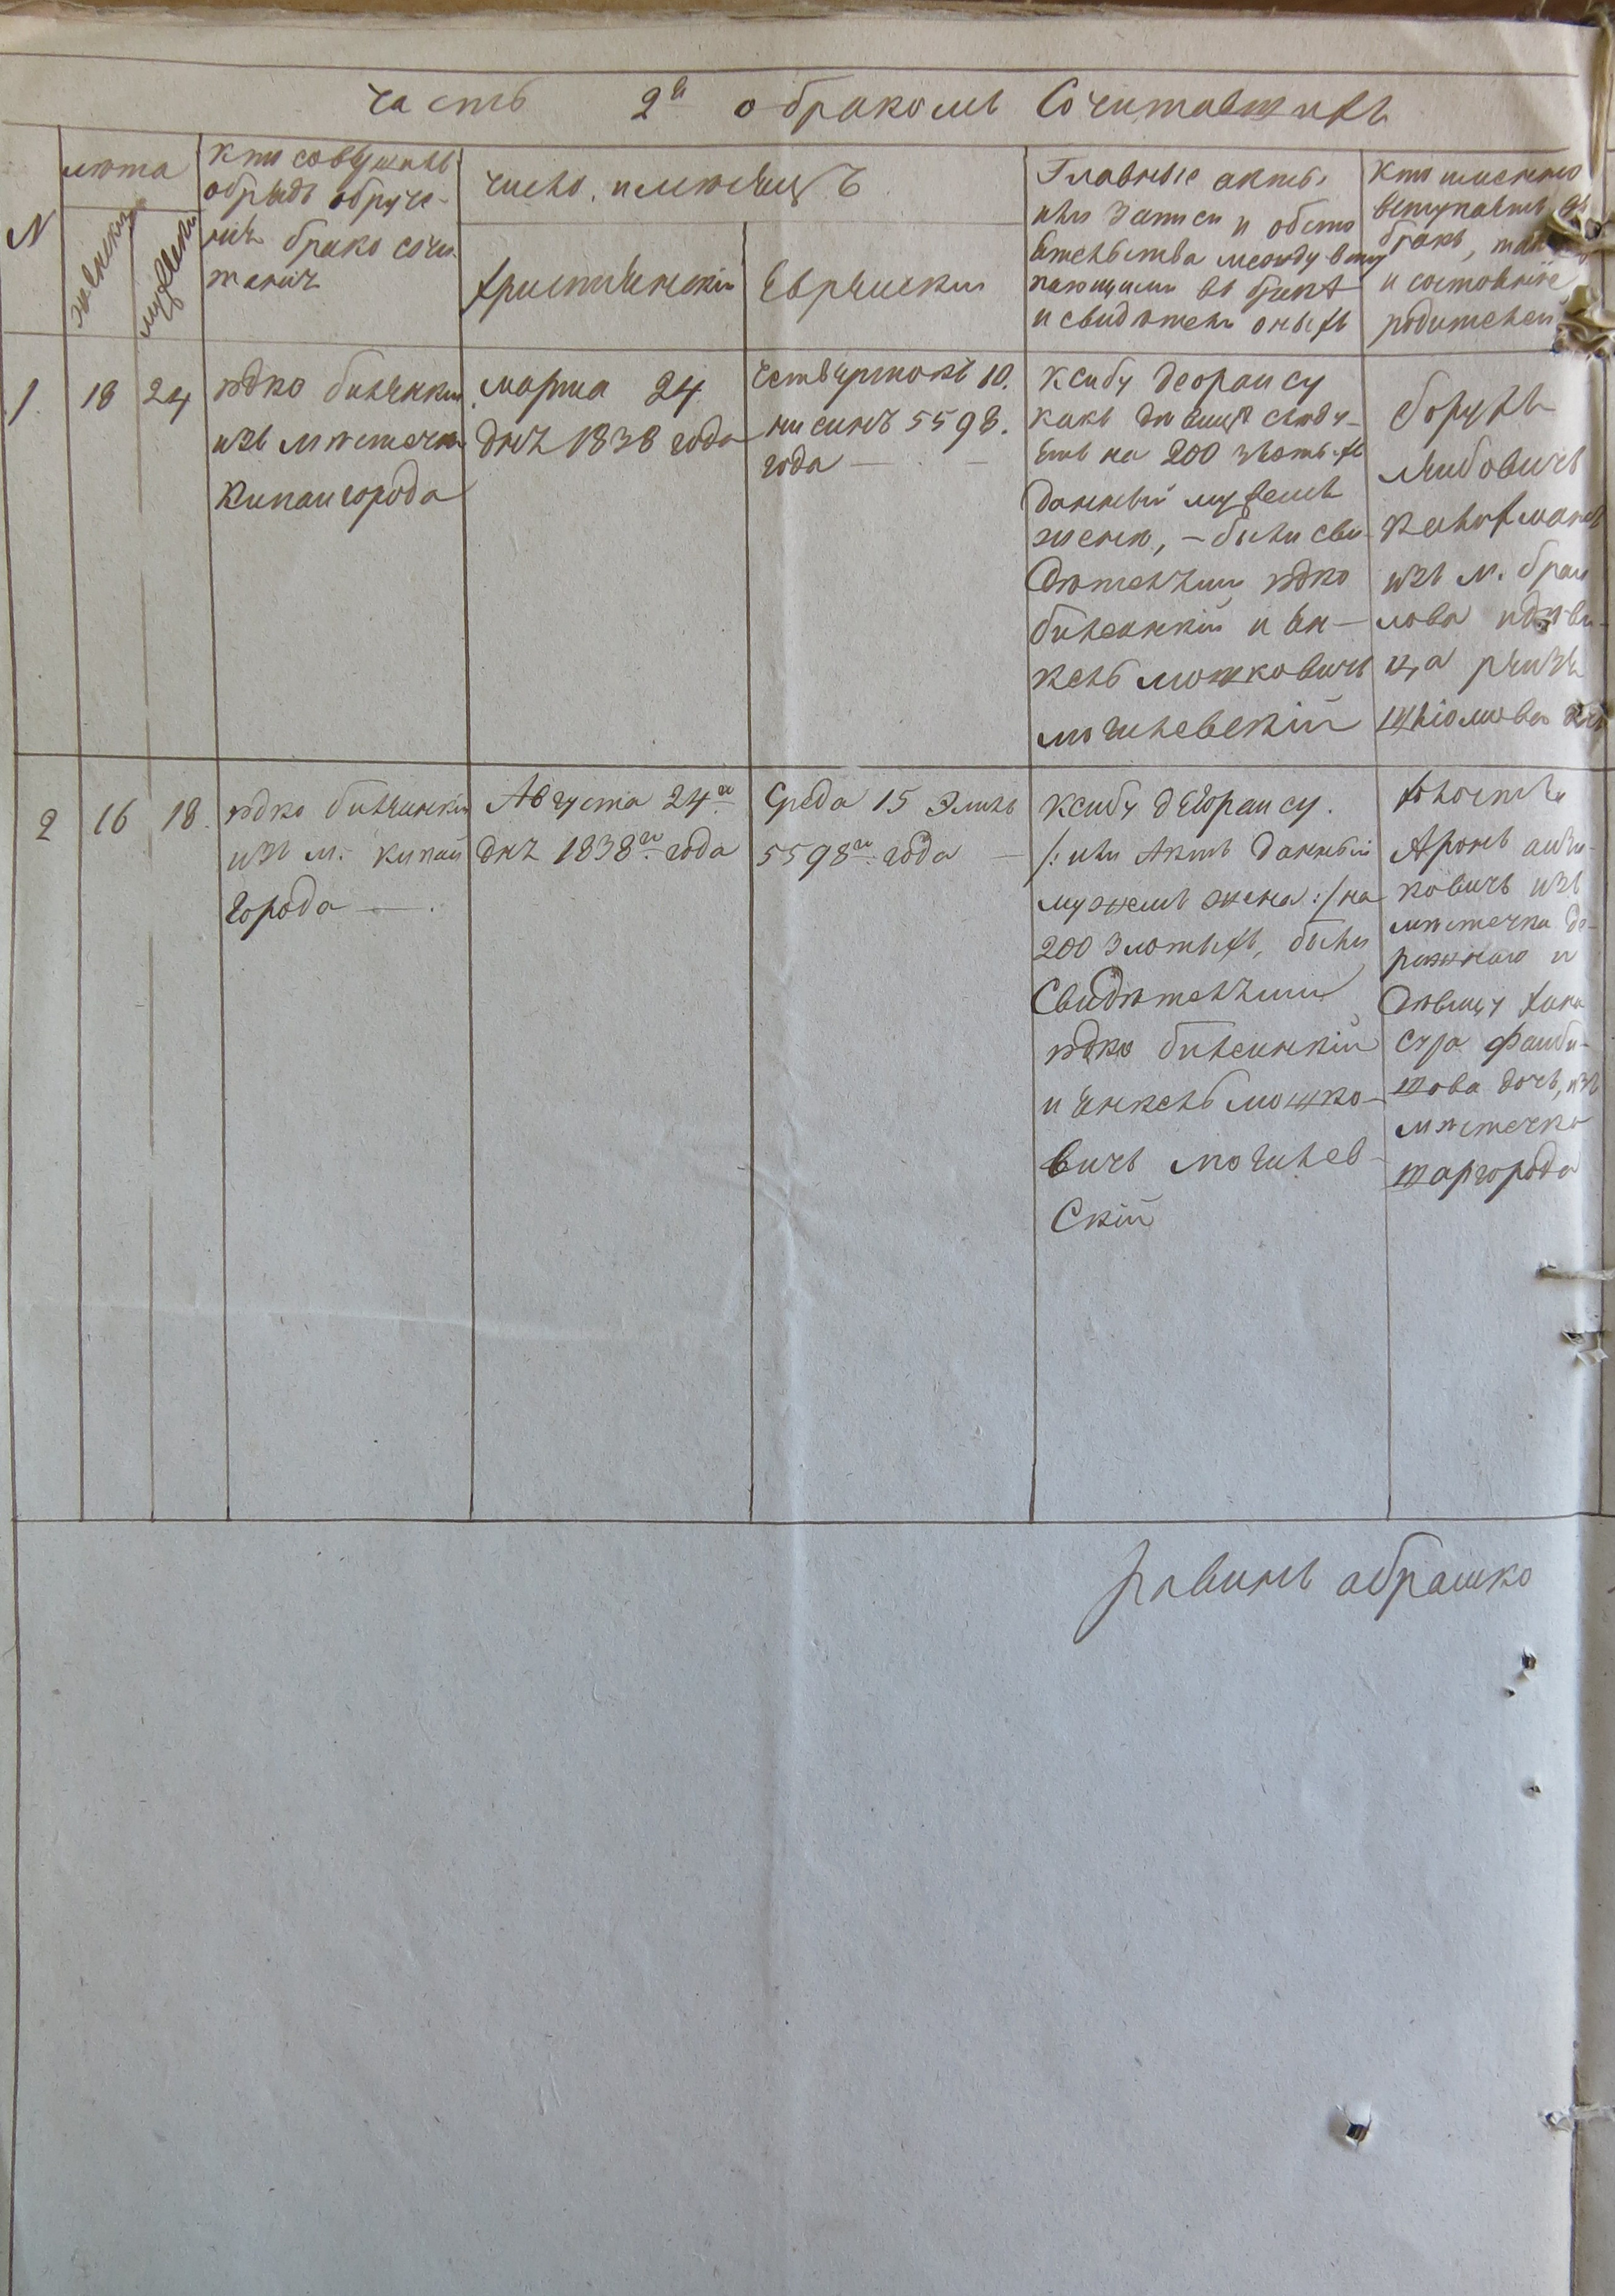 часть 2я о бракомъ Сочитавшихъ
N
лѣта
женски
мужески
кто совершилъ
обрядъ обруче-
нія брако сочи
танія
число и мѣсяцъ
христіянскіи
Еврѣиски
Главные акты
или Записи и обсто
ятельства между всту
пающими въ бракъ
и свидѣтели оныхъ
кто именно
вступаетъ въ
бракъ, так
и состояніе
родителеи
1
18
24
Юдко билянки
изъ мѣстечка
Копаигорода
марта 24
дня 1838 года
четвертокъ 10.
нисинъ 5598.
года —
ксибу деораису
какъ дѣвице слѣду-
етъ на 200 злотыхъ
данный мужемъ
женѣ, – были сви
дѣтелями Юдко
билянкіи и ян-
кель мошковичъ
могилевскій
борухъ
лѣибовичъ
изъ м. браи
лова и дѣви-
ца рѣизя
2
16
18
Юдко билянкіи
изъ м. Копаи
города —.
Августа 24го
дня 1838го года
Среда 15 Элиль
5598го года —
ксибу дЕораису.
/: или Актъ данный
мужемъ жена :/ на
200 Злотыхъ, были
Свидѣтелями
Юдко билянкіи
и янкель мошко-
вичъ могилев-
Скій
холостъи
Аронъ аизи-
ковичъ изъ
мѣстечка де-
ражнаго и
дѣвицу хана
сура фаиби-
шова дочь, изъ
мѣстечка
шаргорода
равинъ абрашко